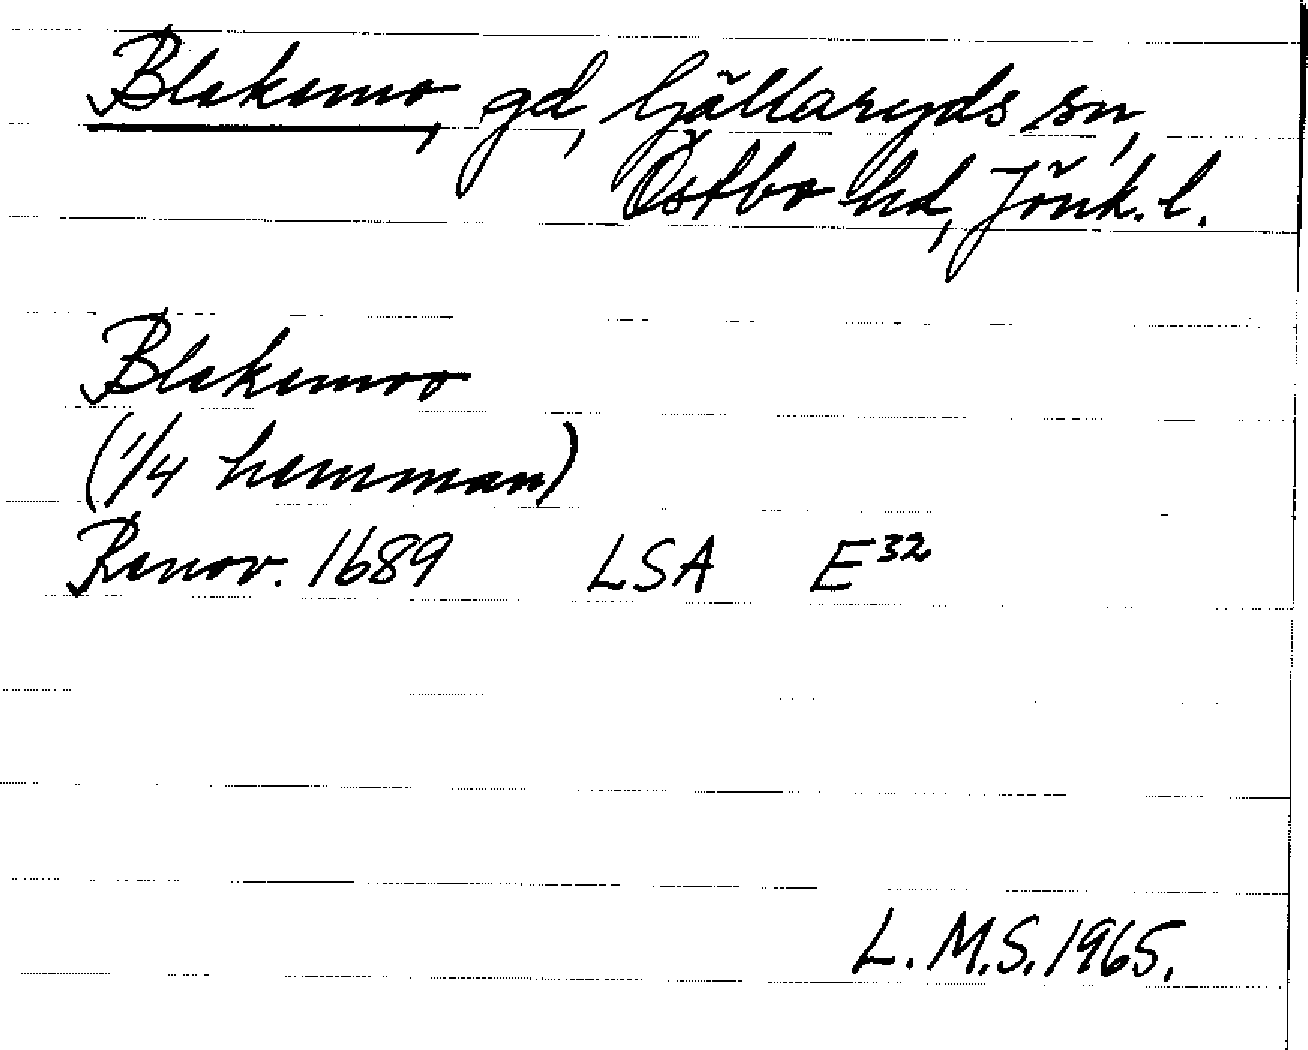 Blakamo, gd, Gällaryds sn,
Östbo hd, Jönk. l.
Blakamoo
(1/4 hemman)
Renov. 1689 LSA E32
L.M.S. 1965.